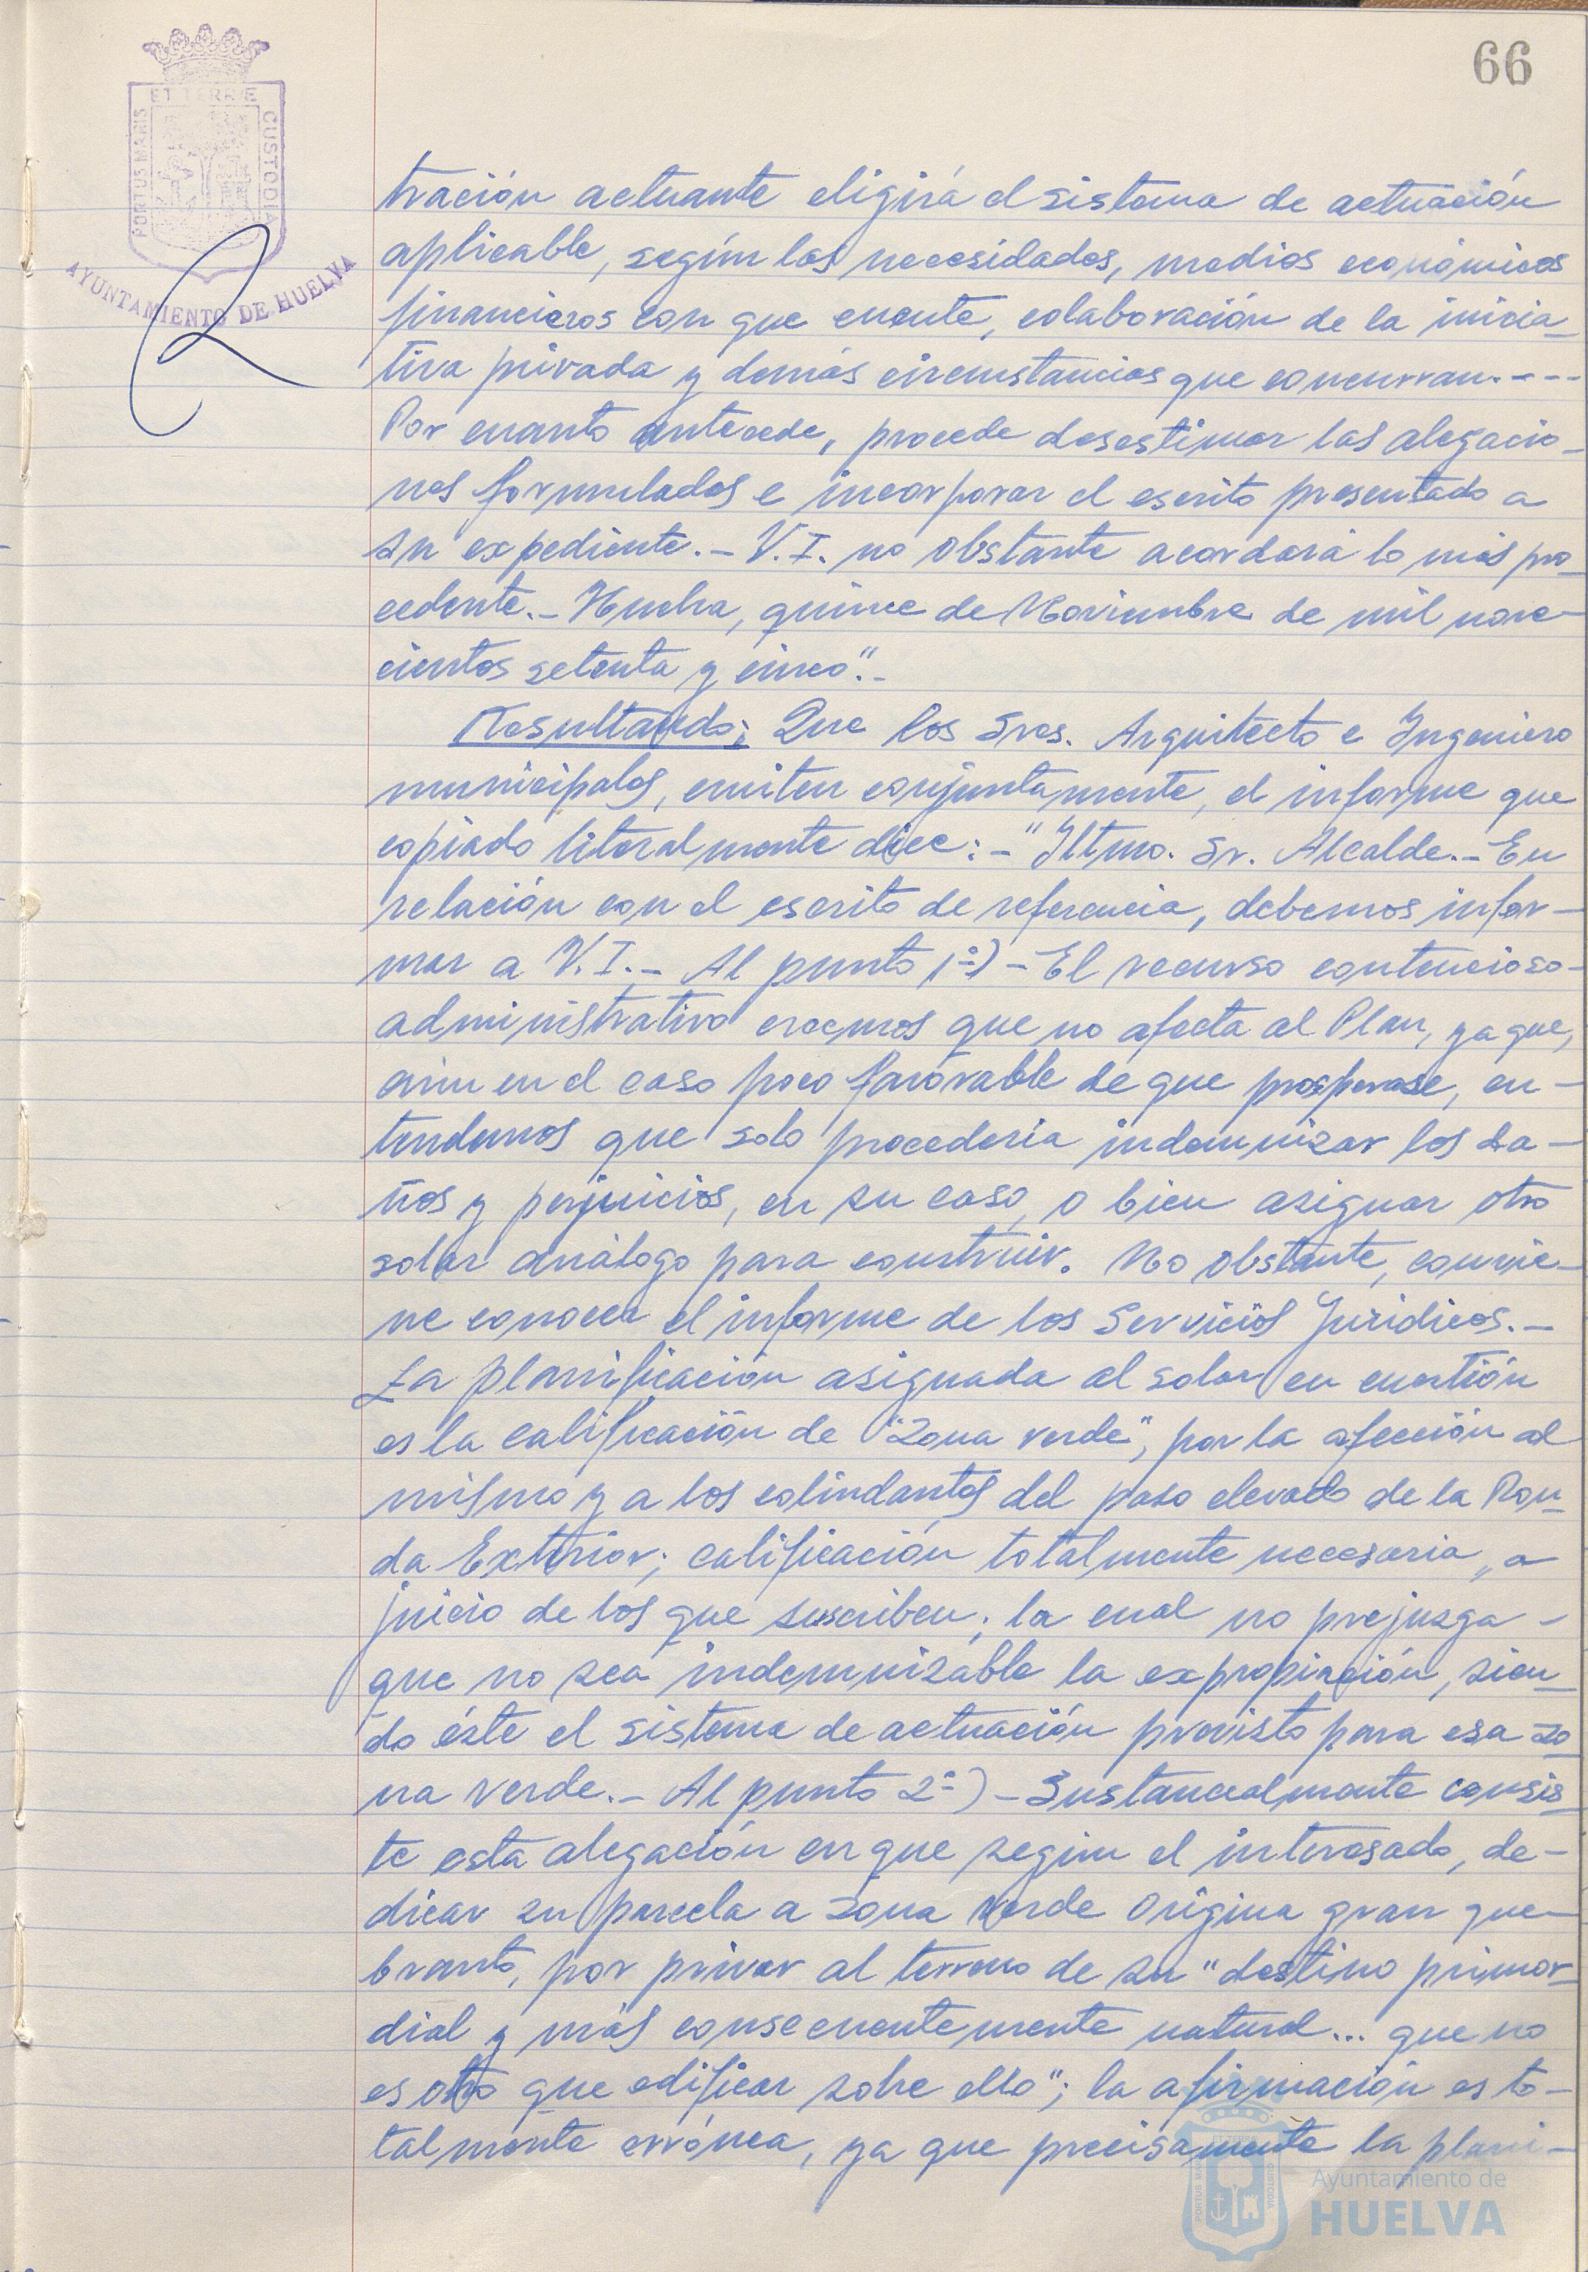 66
ET TERRÆ
PORTUS MARIS
CUSTODIA
AYUNTAMIENTO DE HUELVA
tración actuante eligirá el sistema de actuación
aplicable, según las necesidades, medios económicos
financieros con que cuente, colaboración de la inicia-
tiva privada y demás circunstancias que concurran.---
Por cuanto antecede, procede desestimar las alegacio-
nes formuladas e incorporar el escrito presentado a
su expediente.- V.I. no obstante acordará lo más pro-
cedente.- Huelva, quince de Noviembre de mil nove-
cientos setenta y cinco".-
Resultando: Que los Sres. Arquitecto e Ingeniero
municipales, emiten conjuntamente, el informe que
copiado literalmente dice:- "Iltmo. Sr. Alcalde.- En
relación con el escrito de referencia, debemos infor-
mar a V.I.- Al punto 1º)- El recurso contencioso-
administrativo creemos que no afecta al Plan, ya que,
aún en el caso poco favorable de que prosperase, en-
tendemos que solo procedería indemnizar los da-
ños y perjuicios, en su caso, o bien asignar otro
solar análogo para construir. No obstante, convie-
ne conocer el informe de los Servicios Jurídicos.-
La planificación asignada al solar en cuestión
es la calificación de "Zona verde", por la afección al
mismo y a los colindantes del paso elevado de la Ron-
da Exterior; calificación totalmente necesaria, a
juicio de los que suscriben; la cual no prejuzga-
que no sea indemnizable la expropiación, sien-
do éste el sistema de actuación previsto para esa zo-
na verde.- Al punto 2º)- Sustancialmente consis-
te esta alegación en que según el interesado, de-
dicar su parcela a zona verde origina gran que-
branto, por privar al terreno de su "destino primor-
dial y más consecuentemente natural... que no
es otro que edificar sobre ello"; la afirmación es to-
talmente errónea, ya que precisamente la plani-
Ayuntamiento de
HUELVA